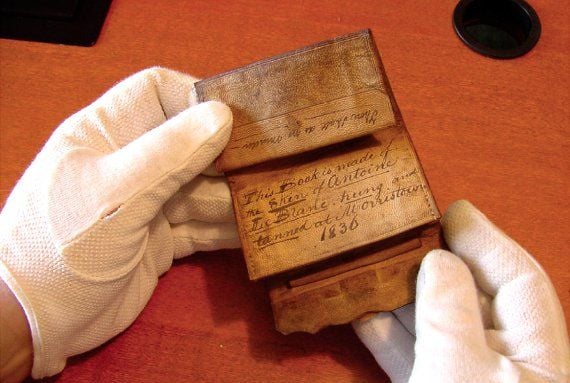 This Book is made of
the Skin of Antoine
Le Blanc hung and
tanned at Morristown
1830